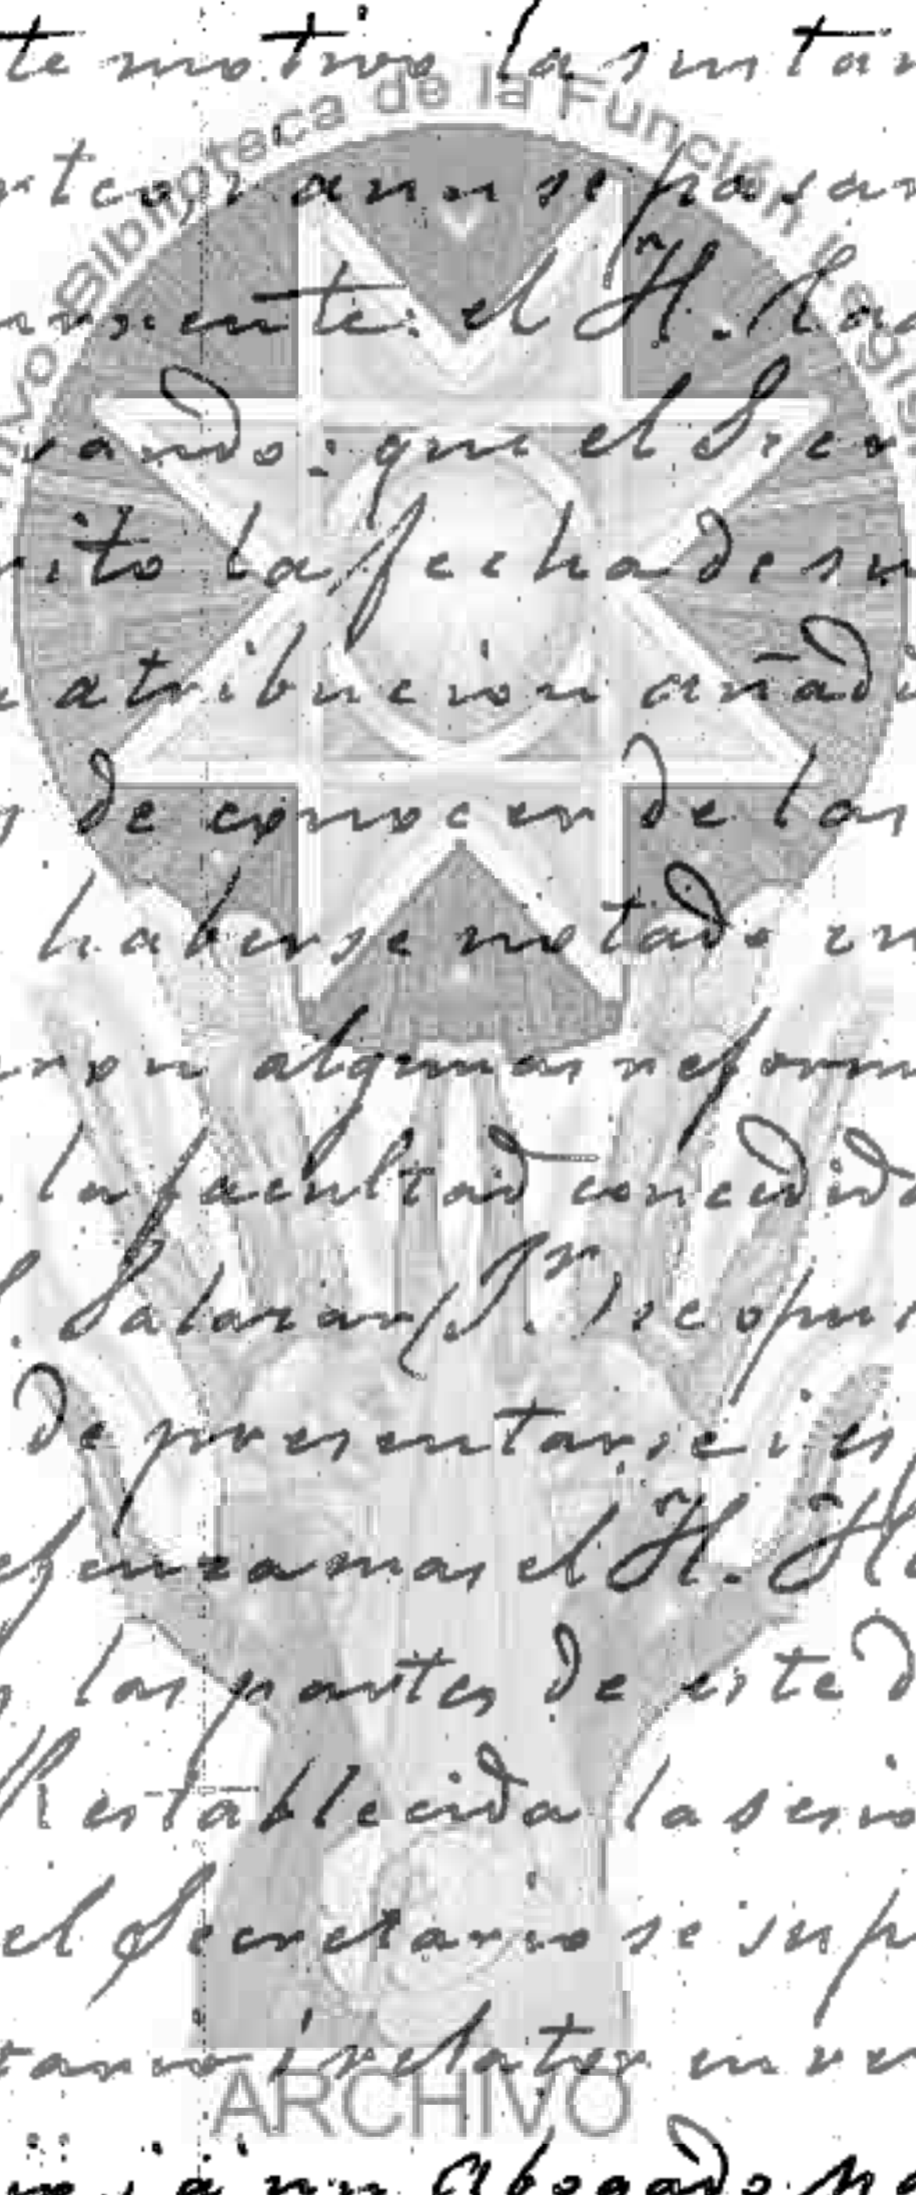 te motivo la instan
Archivo Biblioteca de la Función Legis
rtes, i aun se pasar
siente: el H.r
vando: que el Secr
rito la fecha de su
atribucion añadi
s de conocer de las
haberse notado en
ron algunas reform
la facultad concedida
. Salazar (Jr.) se opus
de presentarse i es
efenza mas el H.r H
s las partes de este d
Restablecida la sesio
el Secretario se sup
tario i relator en
i á un Abogado
ARCHIVO